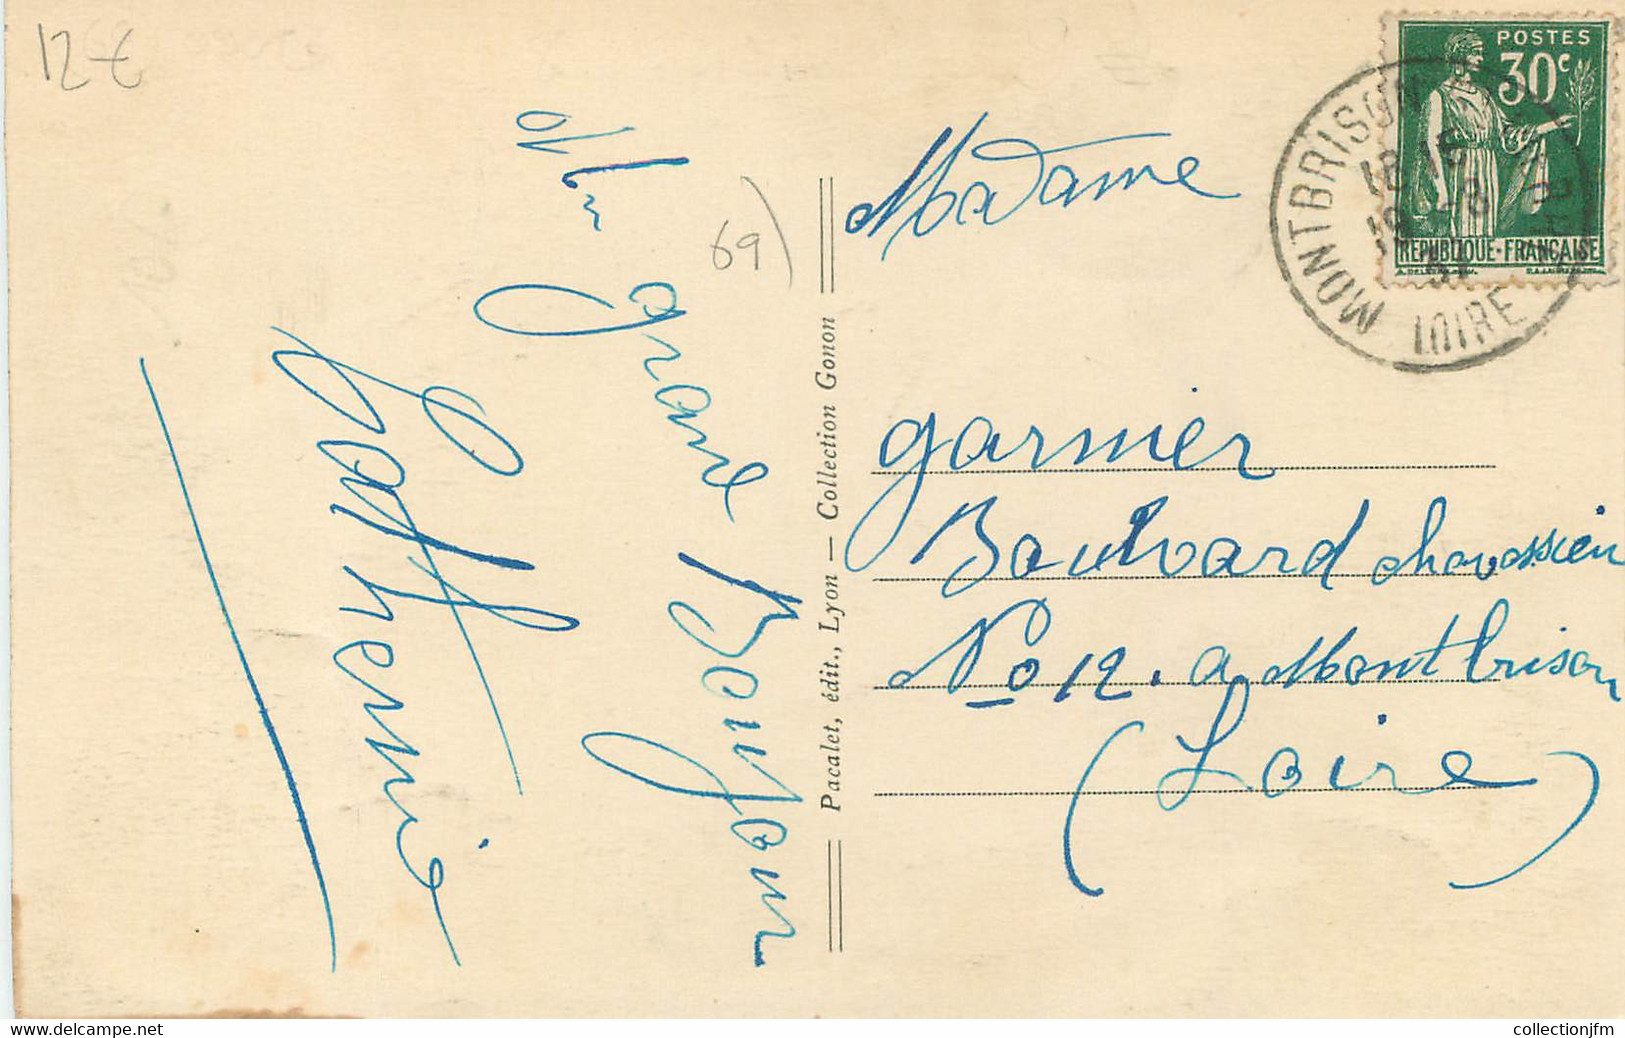 12 €
69)
Un grane Bonjour
Catherine
Pacalet, édit., Lyon — Collection Gonon
Madame
garnier
Boulvard chavassieu
No 12. a Montbrison
(Loire)
POSTES
30c
REPUBLIQUE-FRANÇAISE
MONTBRISON
LOIRE
collectionjfm